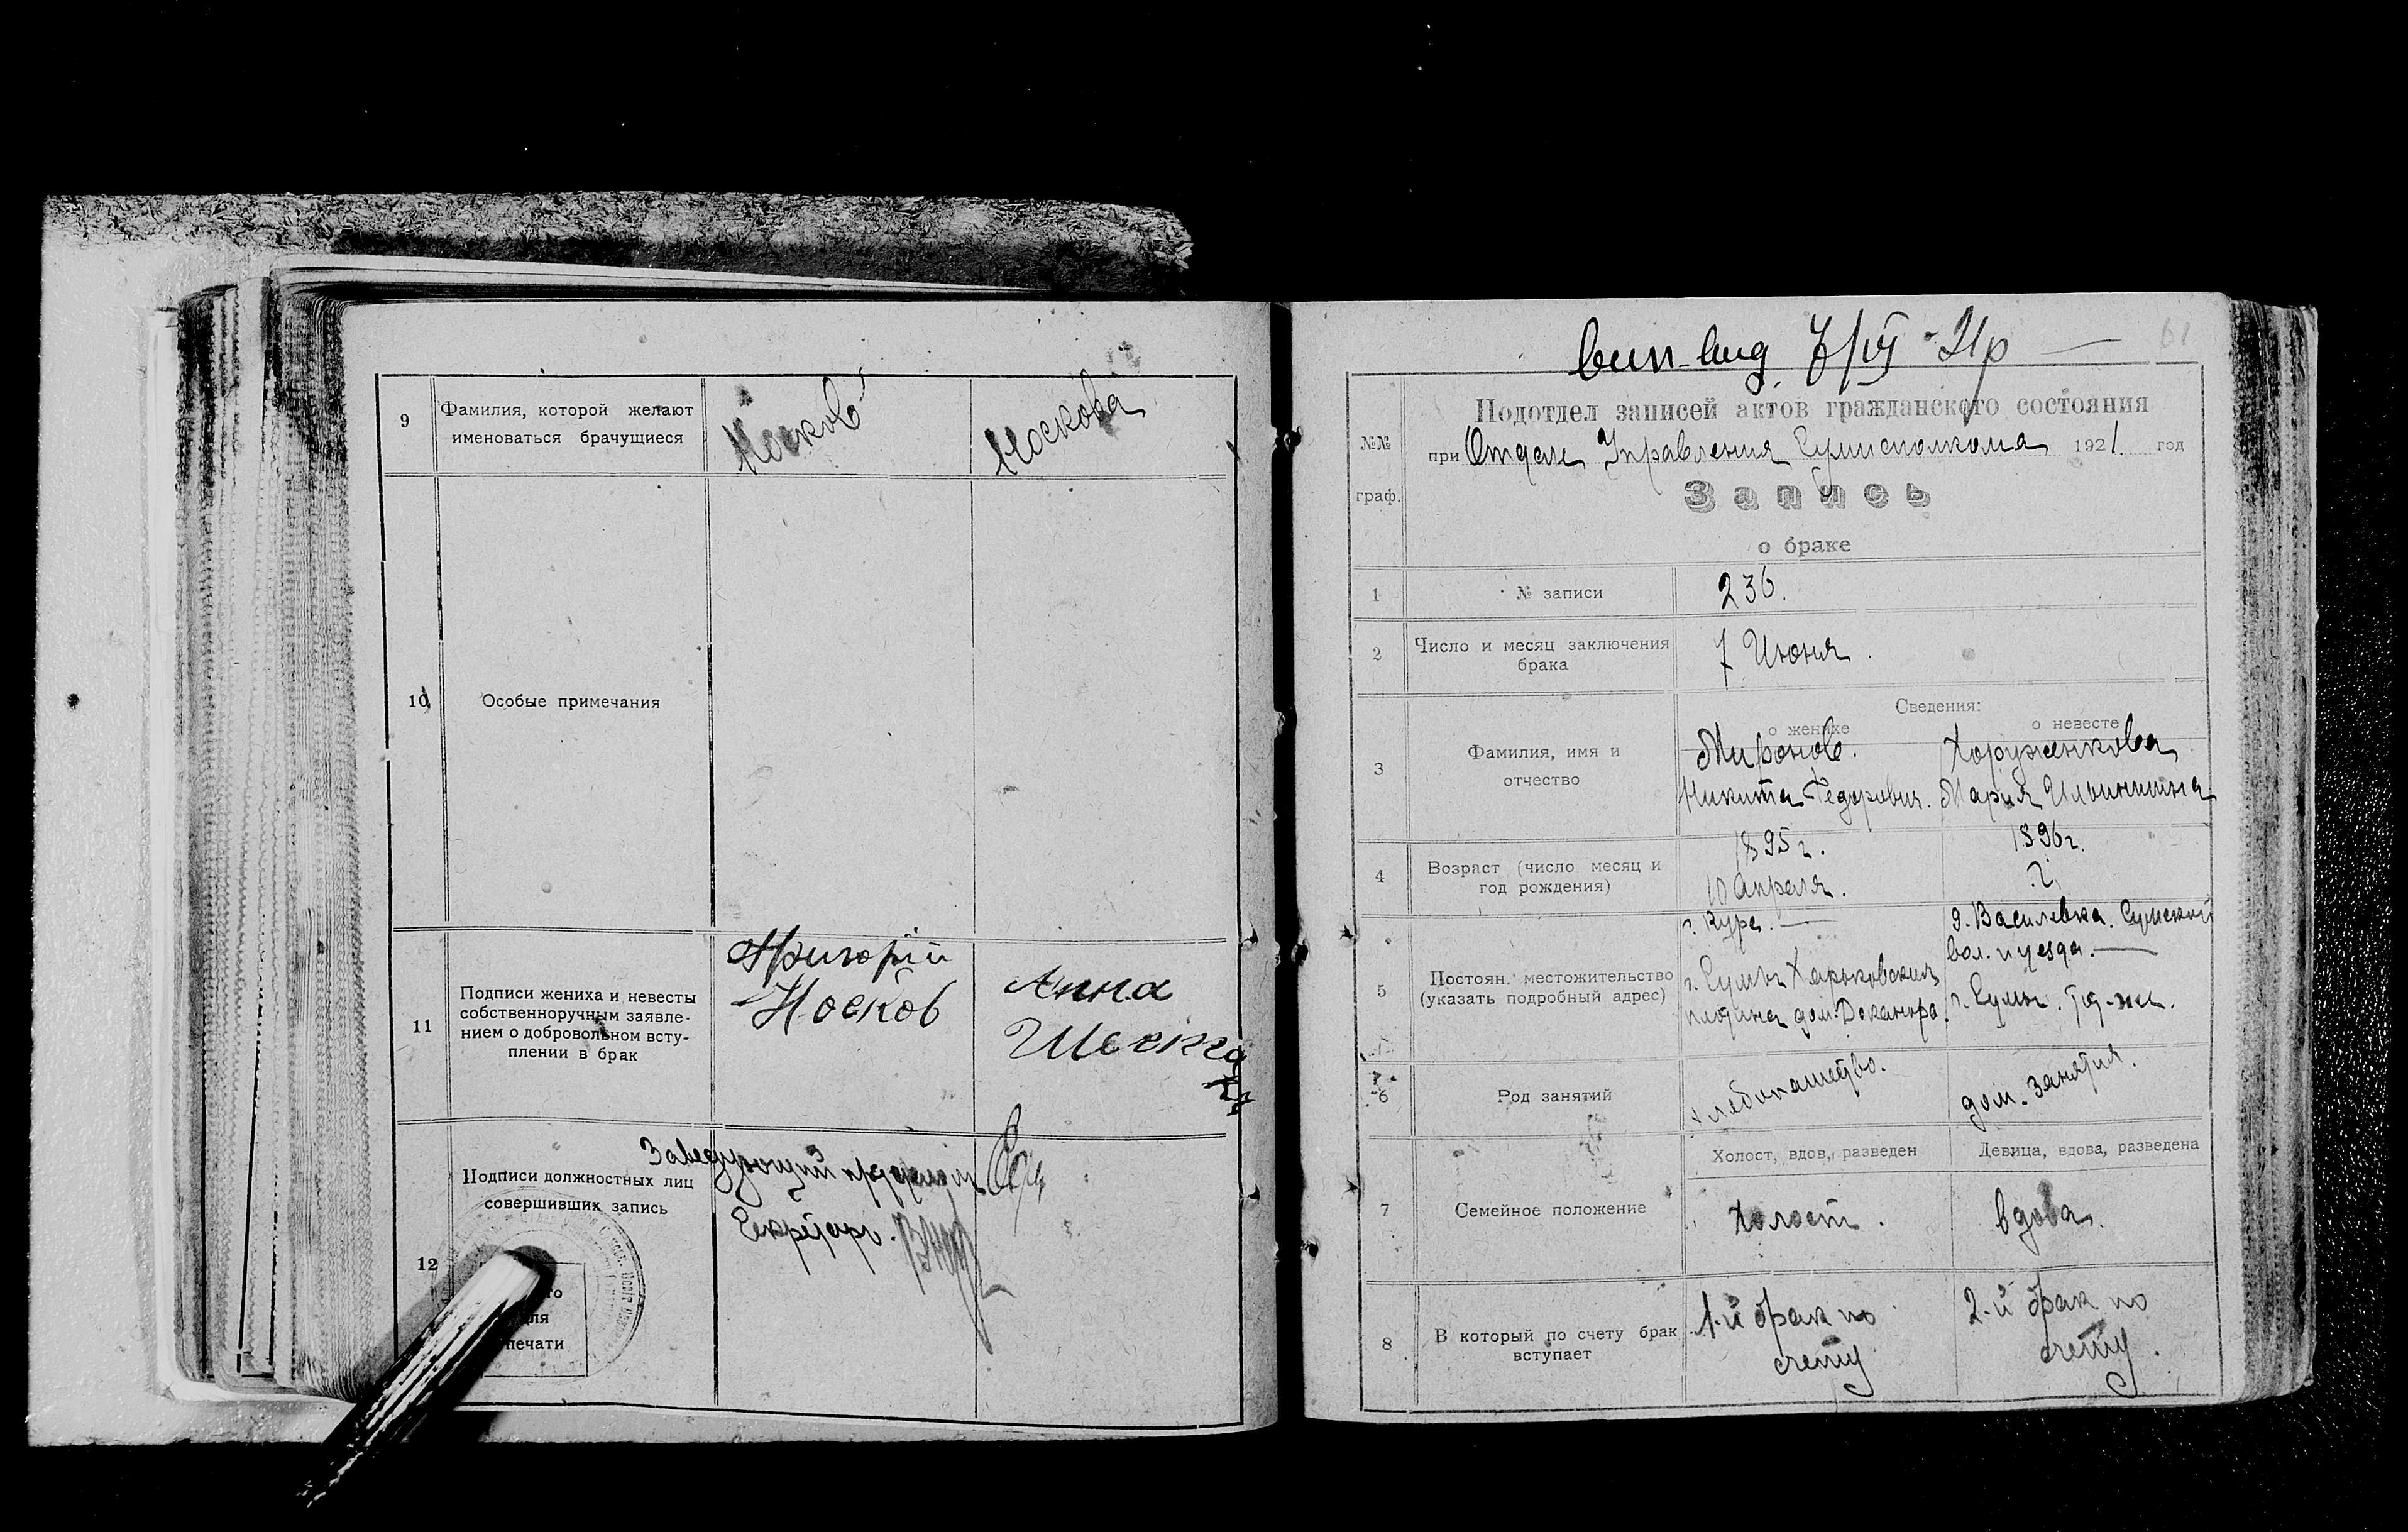 9
Фамилия, которой желают
именоваться брачущиеся
Носков
Носкова
10
Особые примечания
11
Подписи жениха и невесты
собственноручным заявле-
нием о добровольном всту-
плении в брак
Григорій
Носков
Анна
12
Подписи должностных лиц
совершивших запись
Заведующий
Секретарь.
для
печати
61
7/VI 21р
Подотдел записей актов гражданского состояния
№№
граф.
при Отделе Управления Сумисполкома 1921. год
Запись
о браке
1
№ записи
236.
2
Число и месяц заключения
брака
7 Июня.
3
Фамилия, имя и
отчество
Сведения:
о женихе
о невесте
Миронов.
Никита Федорович.
Хоруженкова
Мария Ильинишна
4
Возраст (число месяц и
год рождения)
1895 г.
10 Апреля.
1896 г.
?
5
Постоян. местожительство
(указать подробный адрес)
г. Сумы Харьковская
д. Василевка. Сумской
вол. и уезда.
г. Сумы.
6
Род занятий
хлебопашество.
дом. занятия.
7
Семейное положение
Холост, вдов, разведен
Девица, вдова, разведена
Холост.
вдова.
8
В который по счету брак
вступает
1-й брак по
счету
2-й брак по
счету.